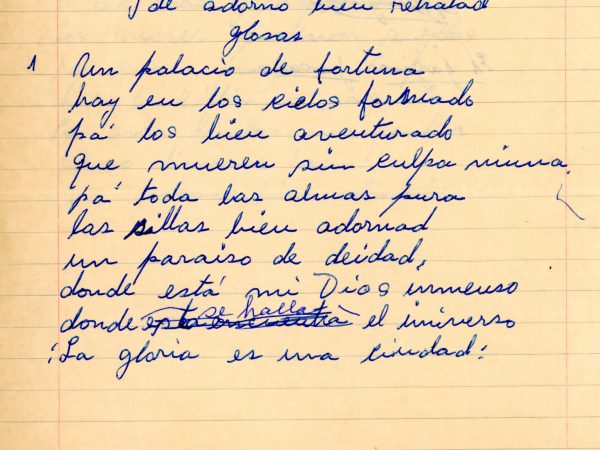 y de adorno bien retratad
glosas
1 Un palacio de fortuna
hay en los cielos formado
pa' los bien aventurado
que mueren sin culpa niuna.
pa' toda las almas pura
las sillas bien adornad
un paraiso de deidad,
donde está mi Dios inmenso
donde se halla el universo
¡La gloria es una ciudad!